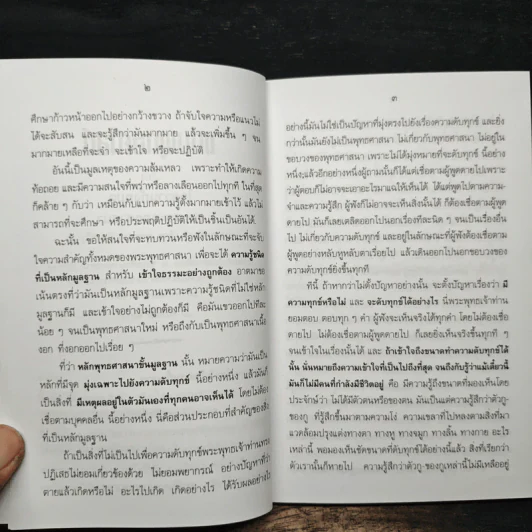 ๒
ศึกษาก้าวหน้าออกไปอย่างกว้างขวาง ถ้าจับใจความหรือแนวไม่
ได้จะสับสน และจะรู้สึกว่ามันมากมาย แล้วจะเพิ่มขึ้น ๆ จน
มากมายเหลือที่จะจำ จะเข้าใจ หรือจะปฏิบัติ
อันนี้เป็นมูลเหตุของความล้มเหลว เพราะทำให้เกิดความ
ท้อถอย และมีความสนใจที่พร่าหรือลางเลือนออกไปทุกที ในที่สุด
ก็คล้าย ๆ กับว่า เหมือนกับแบกความรู้ตั้งมากมายเข้าไว้ แล้วไม่
สามารถที่จะศึกษา หรือประพฤติปฏิบัติให้เป็นชิ้นเป็นอันได้
ฉะนั้น ขอให้สนใจที่จะทบทวนหรือฟังในลักษณะที่จะจับ
ใจความสำคัญทั้งหมดของพระพุทธศาสนา เพื่อจะได้ ความรู้ชนิด
ที่เป็นหลักมูลฐาน สำหรับ เข้าใจธรรมะอย่างถูกต้อง อาตมาขอ
เน้นตรงที่ว่ามันเป็นหลักมูลฐานเพราะความรู้ชนิดที่ไม่ใช่หลัก
มูลฐานก็มี และเข้าใจอย่างไม่ถูกต้องก็มี คือมันเขวออกไปทีละ
น้อย ๆ จนเป็นพุทธศาสนาใหม่ หรือถึงกับเป็นพุทธศาสนาเนื้อ
งอก ที่งอกออกไปเรื่อย ๆ
ที่ว่า หลักพุทธศาสนาขั้นมูลฐาน นั้น หมายความว่ามันเป็น
หลักที่มีจุด มุ่งเฉพาะไปยังความดับทุกข์ นี้อย่างหนึ่ง แล้วมันก็
เป็นสิ่งที่ มีเหตุผลอยู่ในตัวมันเองที่ทุกคนอาจเห็นได้ โดยไม่ต้อง
เชื่อตามบุคคลอื่น นี้อย่างหนึ่ง นี่คือส่วนประกอบที่สำคัญของสิ่ง
ที่เป็นหลักมูลฐาน
ถ้าเป็นสิ่งที่ไม่เป็นไปเพื่อความดับทุกข์พระพุทธเจ้าท่านทรง
ปฏิเสธไม่ยอมเกี่ยวข้องด้วย ไม่ยอมพยากรณ์ อย่างปัญหาที่ว่า
ตายแล้วเกิดหรือไม่ อะไรไปเกิด เกิดอย่างไร ได้รับผลอย่างไร
๓
อย่างนี้มันไม่ใช่เป็นปัญหาที่มุ่งตรงไปยังเรื่องความดับทุกข์ และยิ่ง
กว่านั้นมันยังไม่เป็นพุทธศาสนา ไม่เกี่ยวกับพุทธศาสนา ไม่อยู่ใน
ขอบวงของพุทธศาสนา เพราะไม่ได้มุ่งหมายที่จะดับทุกข์ นี้อย่าง
หนึ่ง;แล้วอีกอย่างหนึ่งผู้ถามนั้นก็ได้แต่เชื่อตามผู้พูดดายไปเพราะ
ว่าผู้ตอบก็ไม่อาจจะเอาอะไรมาแสดงให้เห็นได้ ได้แต่พูดไปตามความ
จำและความรู้สึก ผู้ฟังก็ไม่อาจจะเห็นสิ่งนั้นได้ ก็ต้องเชื่อตามผู้พูด
ดายไป มันก็เลยเตลิดออกไปนอกเรื่องทีละนิด ๆ จนเป็นเรื่องอื่น
ไป ไม่เกี่ยวกับความดับทุกข์ และอยู่ในลักษณะที่ผู้ฟังต้องเชื่อตาม
ผู้พูดอย่างหลับหูหลับตาเรื่อยไป แล้วก็เตลิดออกไปนอกขอบวงของ
ความดับทุกข์ยิ่งขึ้นทุกที
ทีนี้ ถ้าหากว่าไม่ตั้งปัญหาอย่างนั้น จะตั้งปัญหาเรื่องว่า มี
ความทุกข์หรือไม่ และ จะดับทุกข์ได้อย่างไร นี่พระพุทธเจ้าท่าน
ยอมตอบ ตอบทุก ๆ คำ ผู้ฟังจะเห็นจริงได้ทุกคำ โดยไม่ต้องเชื่อ
ดายไป ไม่ต้องเชื่อตามผู้พูดดายไป ก็เลยยิ่งเห็นจริงขึ้นทุกที ๆ
จนเข้าใจในเรื่องนั้นได้ และ ถ้าเข้าใจถึงขนาดทำความดับทุกข์ได้
นั้น นั่นหมายถึงความเข้าใจที่เป็นไปถึงที่สุด จนถึงกับรู้ว่าแม้เดี๋ยวนี้
มันก็ไม่มีคนที่กำลังมีชีวิตอยู่ คือ มีความรู้ถึงขนาดที่มองเห็นโดย
ประจักษ์ว่า ไม่ได้มีตัวตนหรือของตน มันเป็นแต่ความรู้สึกว่าตัวกู-
ของกู ที่รู้สึกขึ้นมาตามความโง่ ความเขลาที่ไปหลงตามสิ่งที่มา
แวดล้อมปรุงแต่งทางตา ทางหู ทางจมูก ทางลิ้น ทางกาย อะไร
เหล่านี้ พอมองเห็นชัดขนาดที่ดับทุกข์ได้อย่างนี้แล้ว สิ่งที่เรียกว่า
ตัวเรานั้นก็หายไป ความรู้สึกว่าตัวกู-ของกูเหล่านี้ไม่มีเหลืออยู่